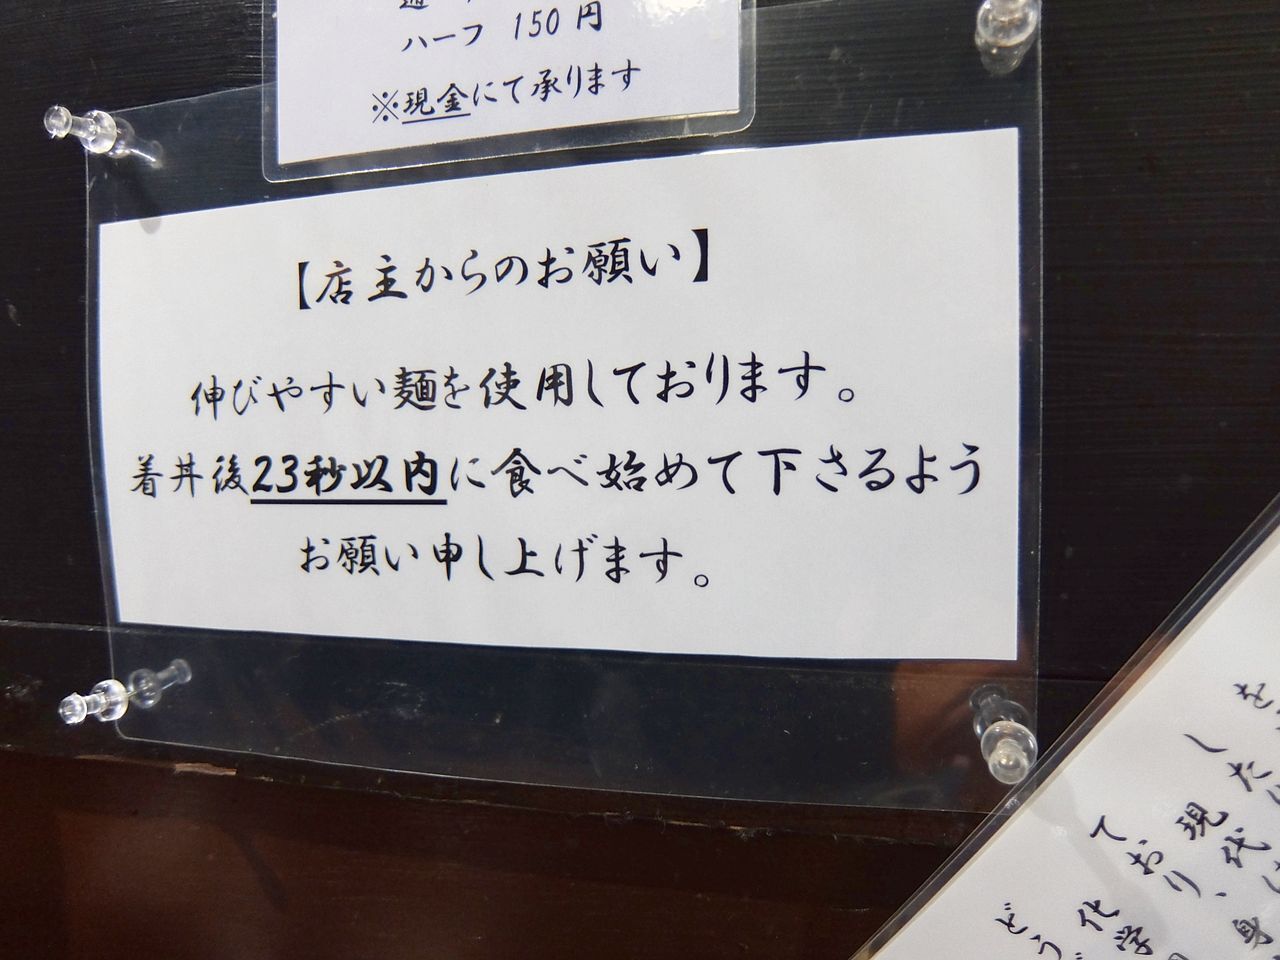 ハーフ 150円
※現金にて承ります
【店主からのお願い】
伸びやすい麺を使用しております。
着丼後23秒以内に食べ始めて下さるよう
お願い申し上げます。
を
した
現代
身
ており、
化学
どう